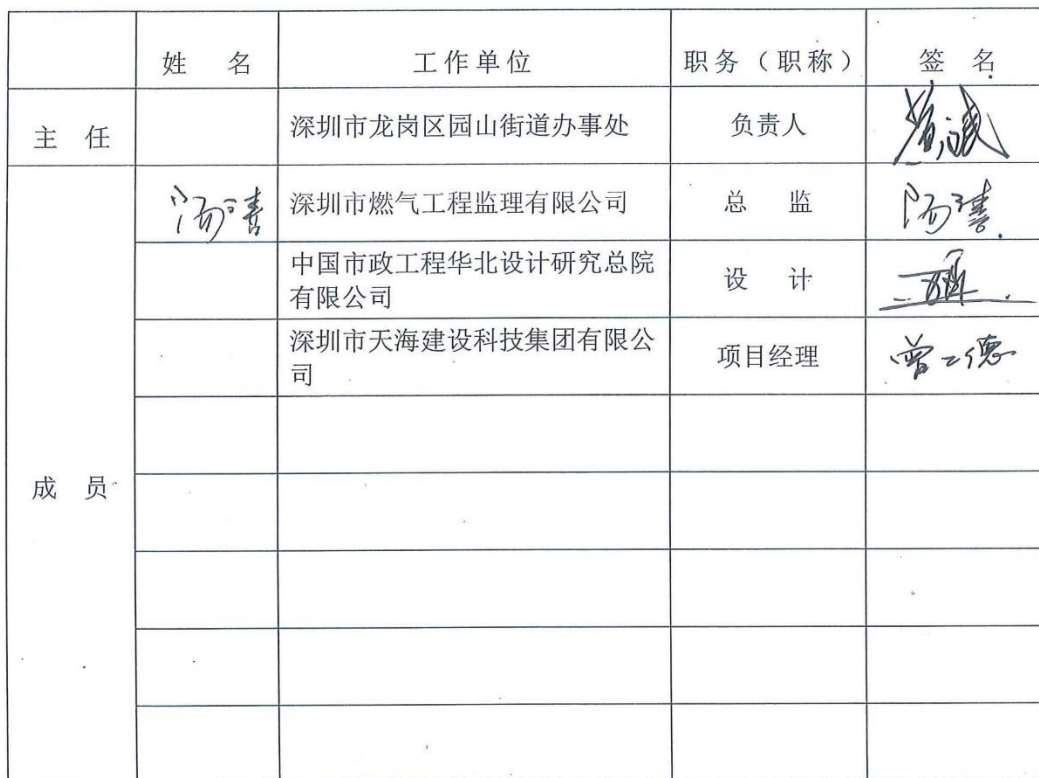 姓 名 工作单位 职务（职称） 签 名
主 任 深圳市龙岗区园山街道办事处 负责人
深圳市燃气工程监理有限公司 总 监
中国市政工程华北设计研究总院
有限公司 设 计
深圳市天海建设科技集团有限公
司 项目经理
成 员